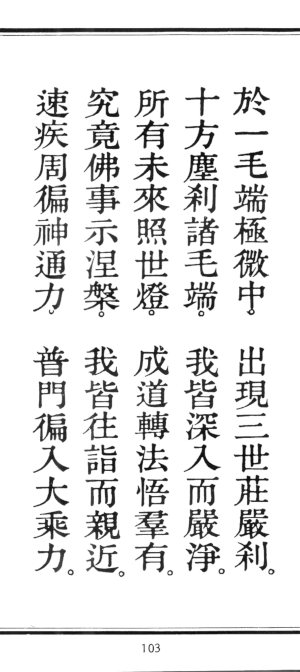 於一毛端極微中。出現三世莊嚴剎。
十方塵剎諸毛端。我皆深入而嚴淨。
所有未來照世燈。成道轉法悟羣有。
究竟佛事示涅槃。我皆往詣而親近。
速疾周徧神通力。普門徧入大乘力。
103